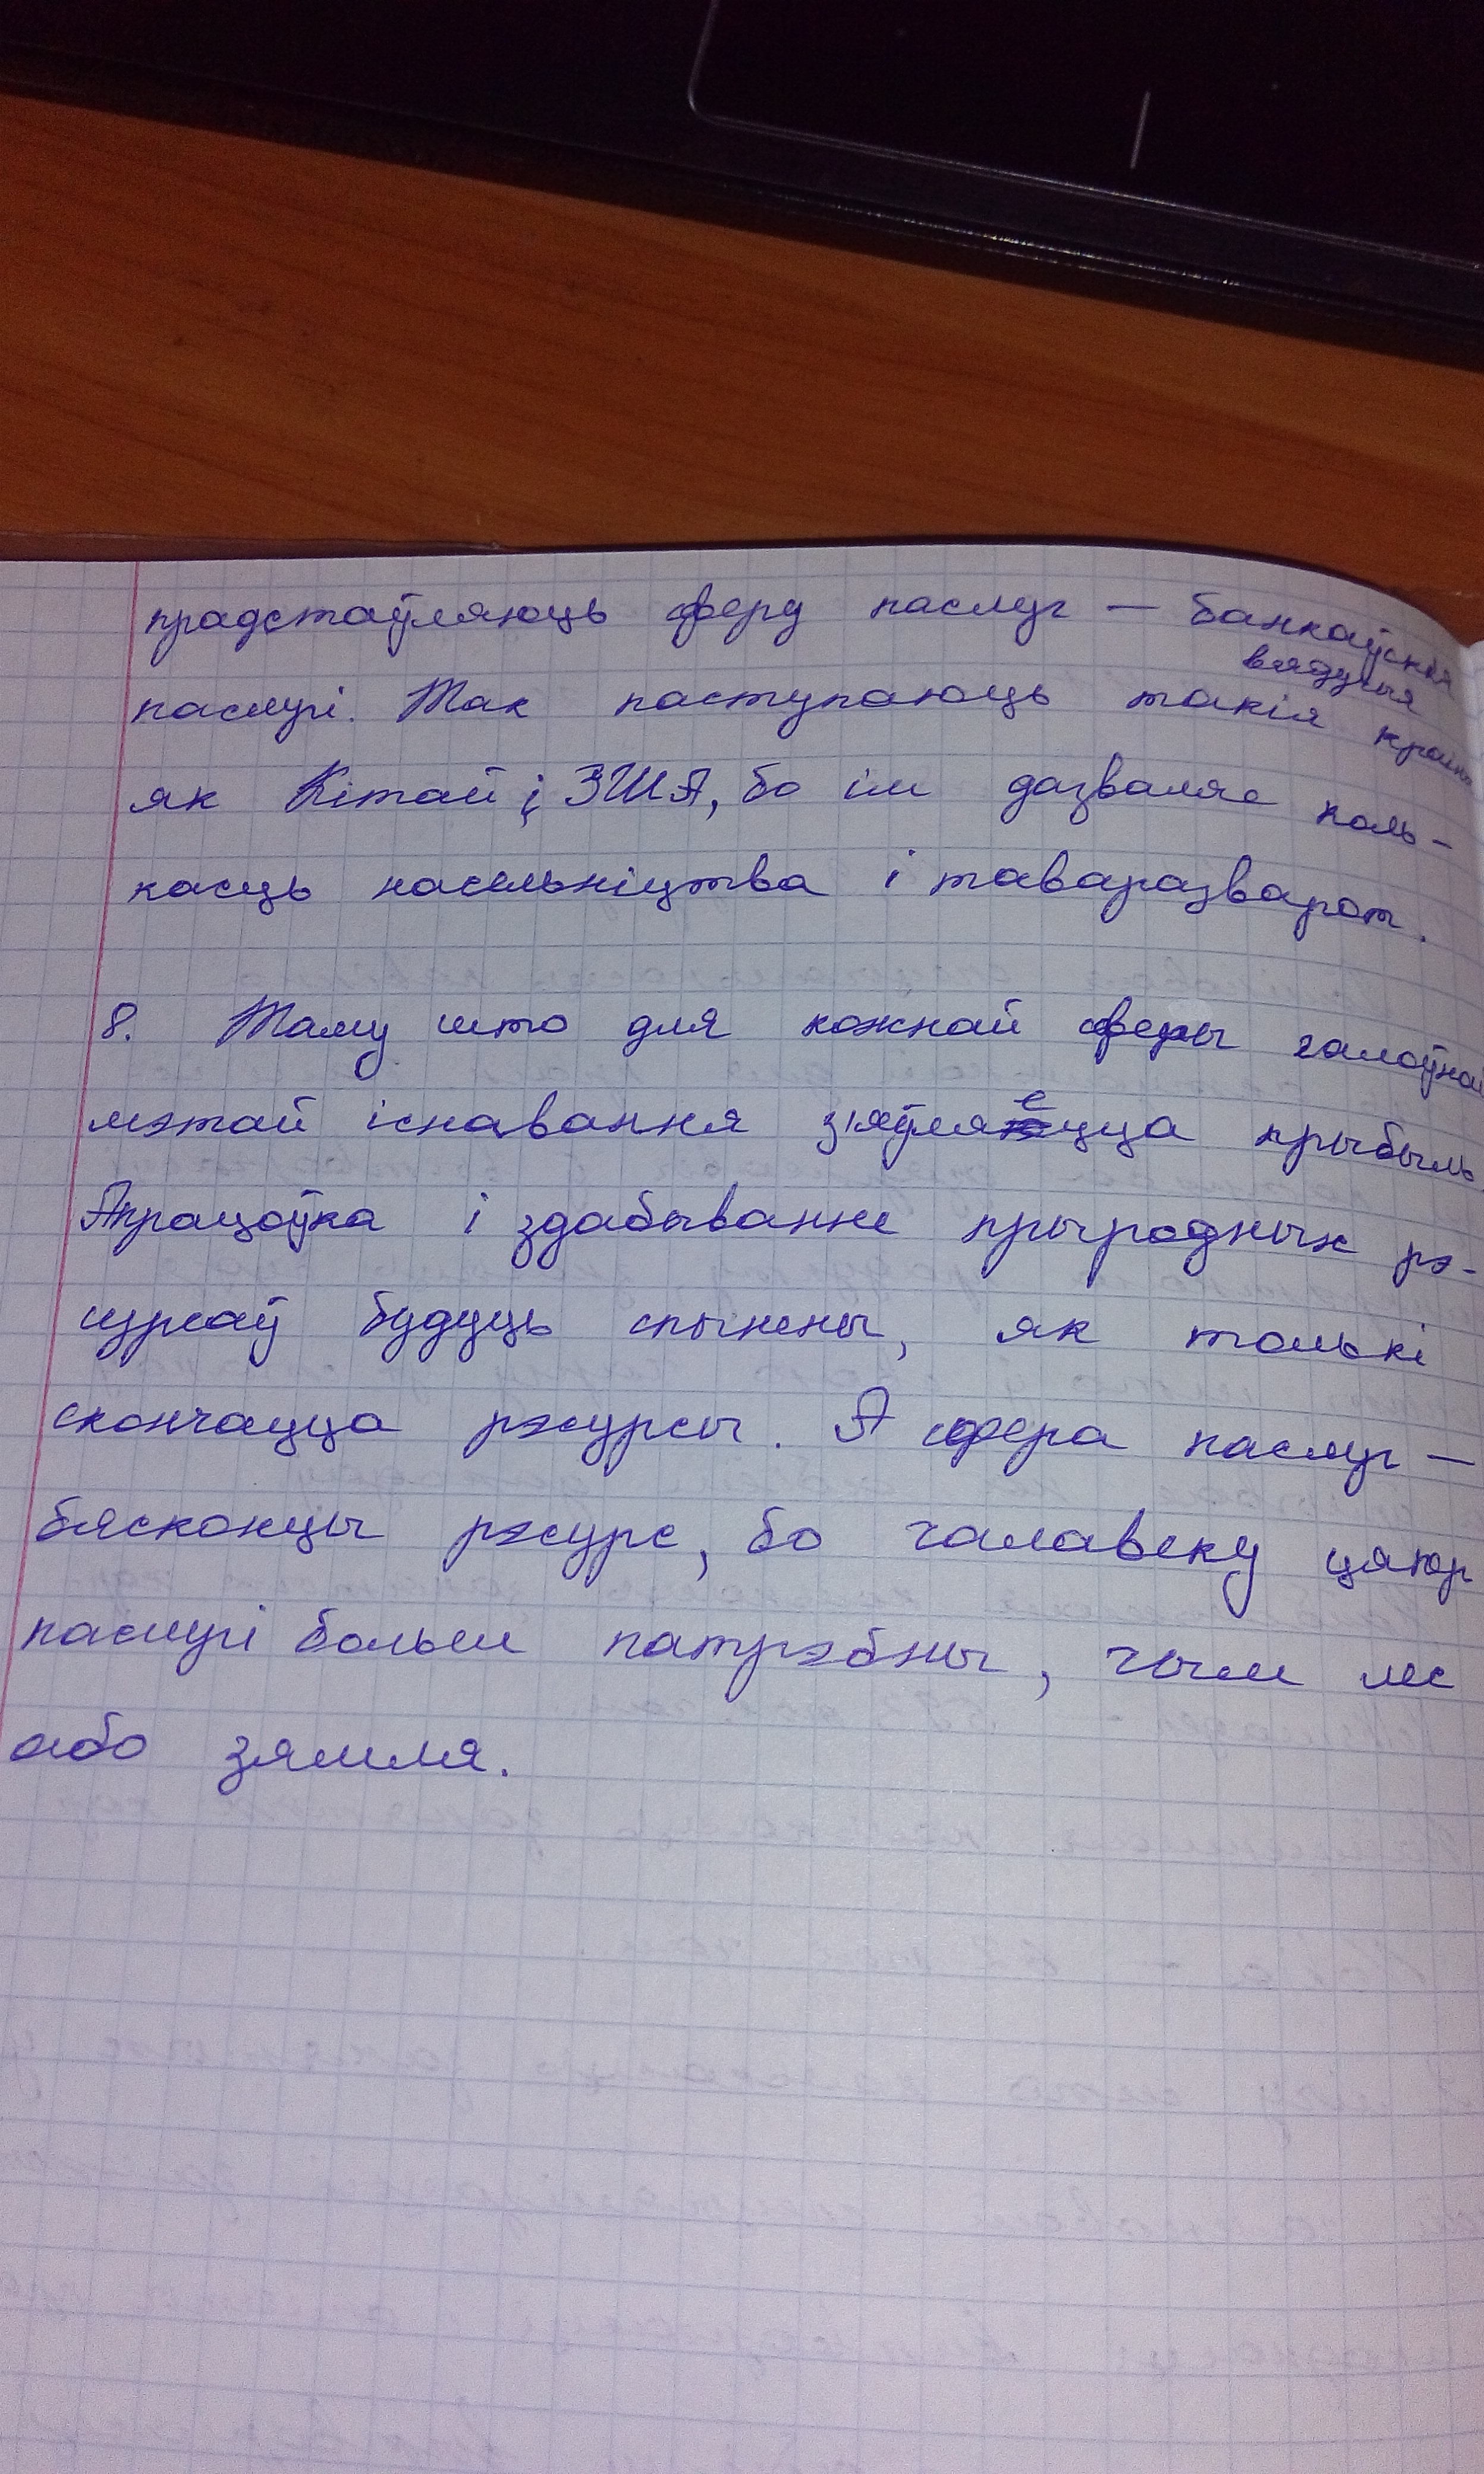 прадстаўляюць сферу паслуг — банкаўскія
паслугі. Так паступаюць такія вядучыя краіны
як Кітай і ЗША, бо ім дазваляе коль-
касць насельніцтва і тавараразварот.
8. Таму што для кожнай сферы галоўнай
мэтай існавання з'яўляецца прыбыль.
Апрацоўка і здабыванне прыродных рэ-
сурсаў будуць спынены, як толькі
скончацца рэсурсы. А сфера паслуг —
бясконцы рэсурс, бо чалавеку цяпер
паслугі больш патрэбны, чым лес
або зямля.